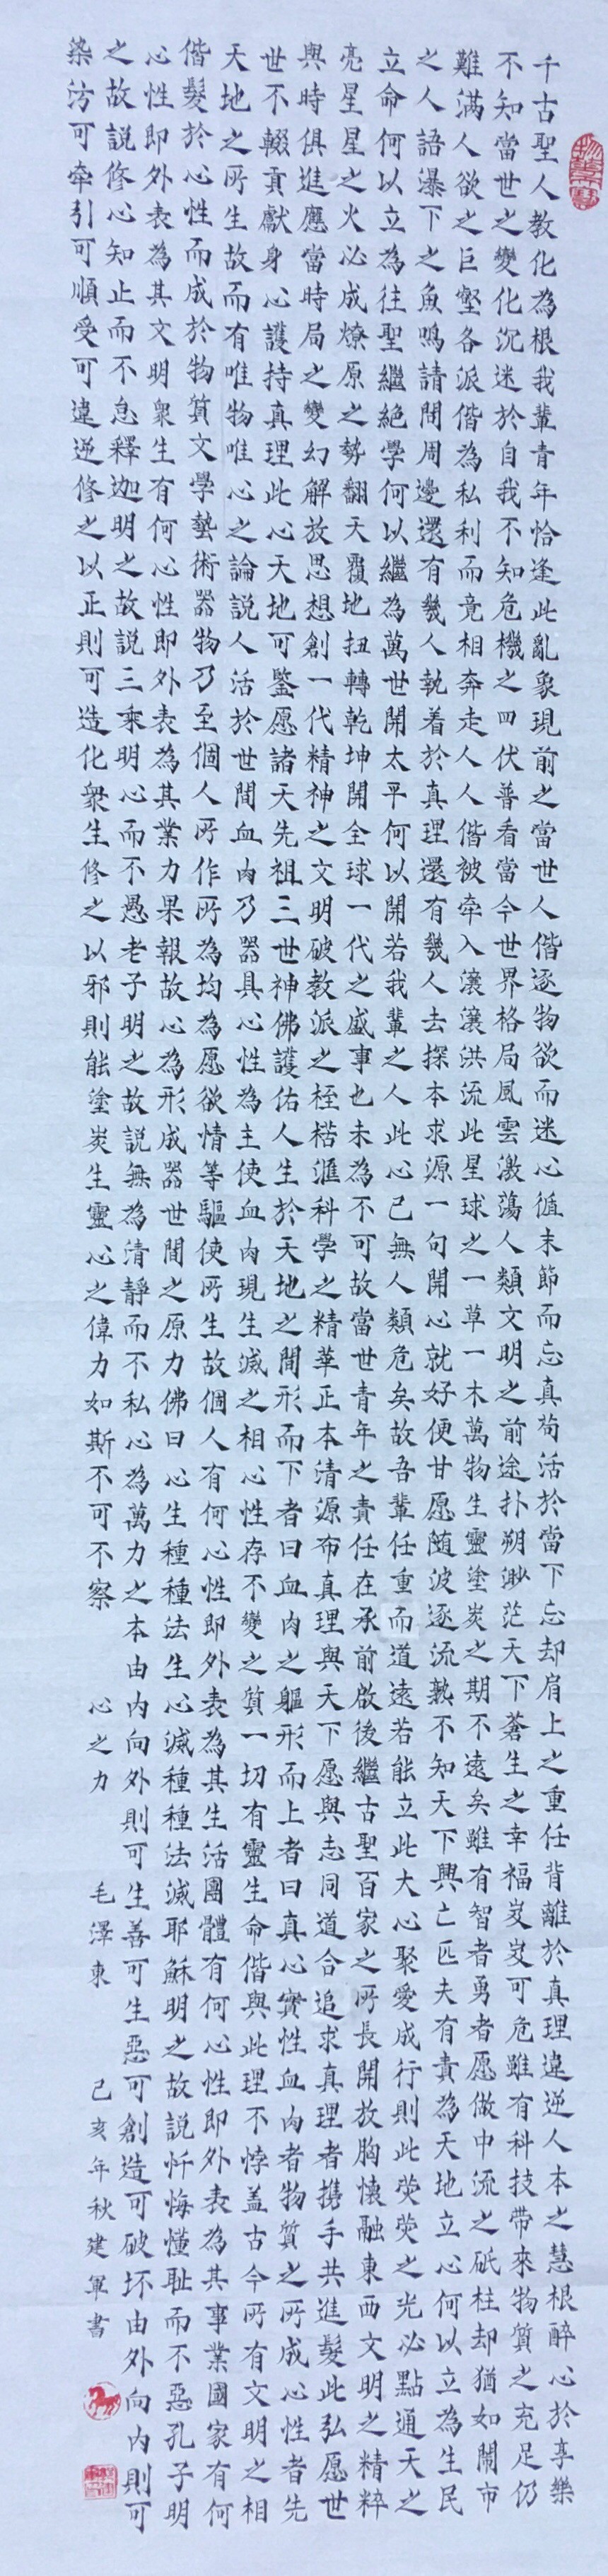 千古聖人教化為根我輩青年恰逢此亂象現前之當世人偕逐物欲而迷心循末節而忘真苟活於當下忘却肩上之重任背離於真理違逆人本之慧根醉心於享樂
不知當世之變化沉迷於自我不知危機之四伏普看當今世界格局風雲激蕩人類文明之前途扑朔渺茫天下蒼生之幸福岌岌可危雖有科技帶來物質之充足仍
難滿人欲之巨壑各派偕為私利而竟相奔走人人偕被牽入瀼瀼洪流此星球之一草一木萬物生靈塗炭之期不遠矣雖有智者勇者愿做中流之砥柱却猶如鬧市
之人語瀑下之魚鳴請問周邊還有幾人執着於真理還有幾人去探本求源一句開心就好便甘愿随波逐流孰不知天下興亡匹夫有責為天地立心何以立為生民
立命何以立為往聖繼絕學何以繼為萬世開太平何以開若我輩之人此心已無人類危矣故吾輩任重而道遠若能立此大心聚愛成行則此熒熒之光必點通天之
亮星星之火必成燎原之勢翻天覆地扭轉乾坤開全球一代之盛事也未為不可故當世青年之責任在承前啟後繼古聖百家之所長開放胸懷融東西文明之精粹
與時俱進應當時局之變幻解放思想創一代精神之文明破教派之桎梏滙科學之精華正本清源布真理與天下愿與志同道合追求真理者携手共進髮此弘愿世
世不輟貢獻身心護持真理此心天地可鑒愿諸天先祖三世神佛護佑人生於天地之間形而下者曰血肉之軀形而上者曰真心實性血肉者物質之所成心性者先
天地之所生故而有唯物唯心之論說人活於世間血肉乃器具心性為主使血肉現生滅之相心性存不變之質一切有靈生命偕與此理不悖盖古今所有文明之相
偕髮於心性而成於物質文學藝術器物乃至個人所作所為均為愿欲情等驅使所生故個人有何心性即外表為其生活團體有何心性即外表為其事業國家有何
心性即外表為其文明衆生有何心性即外表為其業力果報故心為形成器世間之原力佛曰心生種種法生心滅種種法滅耶穌明之故説忏悔懂耻而不惡孔子明
之故説修心知止而不息釋迦明之故説三乘明心而不愚老子明之故説無為清靜而不私心為萬力之本由内向外則可生善可生惡可創造可破坏由外向内則可
染汚可牽引可順受可違逆修之以正則可造化衆生修之以邪則能塗炭生靈心之偉力如斯不可不察 心之力 毛澤東 己亥年秋建軍書